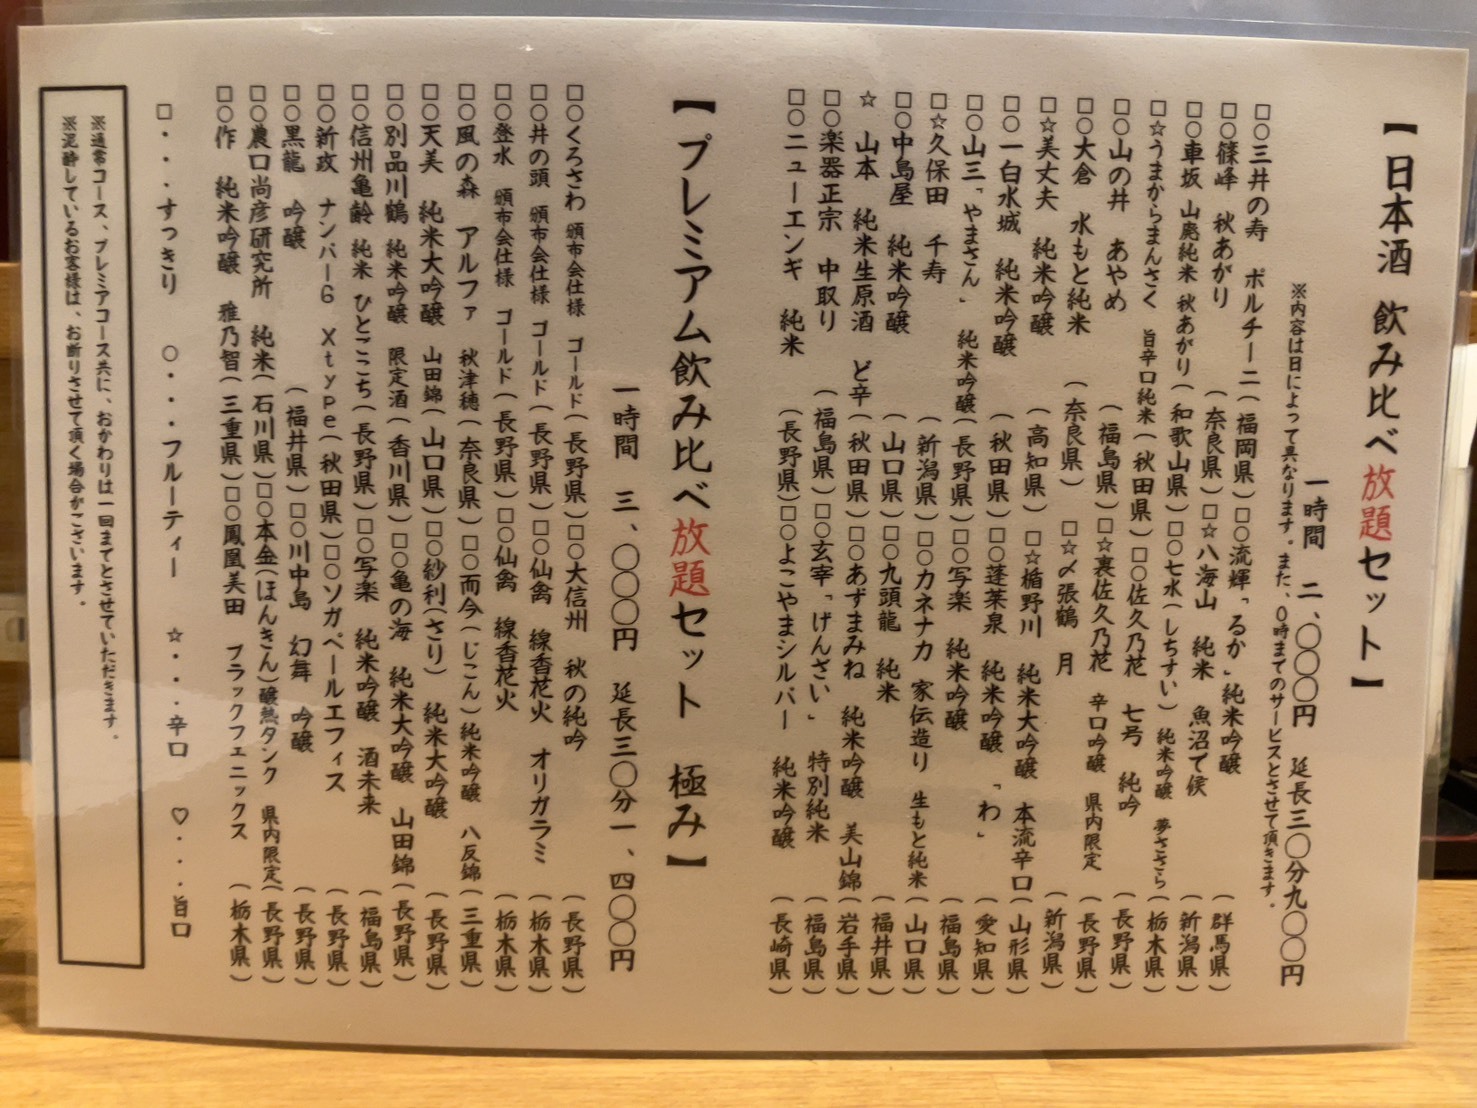 【日本酒 飲み比べ放題セット】
一時間 二、〇〇〇円 延長三〇分九〇〇円
※内容は日によって異なります。また、0時までのサービスとさせて頂きます。
□○三井の寿 ポルチーニ(福岡県)□○流輝「るか」純米吟醸 (群馬県)
□○篠峰 秋あがり (奈良県)□☆八海山 純米 魚沼で候 (新潟県)
□○車坂 山廃純米 秋あがり(和歌山県)□○七水(しちすい)純米吟醸 夢ささら(栃木県)
□☆うまからまんさく 旨辛口純米(秋田県)□○佐久乃花 七号 純吟 (長野県)
□○山の井 あやめ (福島県)□☆裏佐久乃花 辛口吟醸 県内限定(長野県)
□○大倉 水もと純米 (奈良県) □☆〆張鶴 月 (新潟県)
□☆美丈夫 純米吟醸 (高知県)□☆楯野川 純米大吟醸 本流辛口(山形県)
□○一白水城 純米吟醸 (秋田県)□○蓬莱泉 純米吟醸 「わ」 (愛知県)
□○山三「やまさん」 純米吟醸(長野県)□○写楽 純米吟醸 (福島県)
□☆久保田 千寿 (新潟県)□○カネナカ 家伝造り 生もと純米(山口県)
□○中島屋 純米吟醸 (山口県)□○九頭龍 純米 (福井県)
☆ 山本 純米生原酒 ど辛(秋田県)□○あずまみね 純米吟醸 美山錦(岩手県)
□○楽器正宗 中取り (福島県)□○玄宰「げんさい」 特別純米 (福島県)
□○ニューエンギ 純米 (長野県)□○よこやまシルバー 純米吟醸 (長崎県)
【プレミアム飲み比べ放題セット 極み】
一時間 三、〇〇〇円 延長三〇分一、四〇〇円
□○くろさわ 頒布会仕様 ゴールド(長野県)□○大信州 秋の純吟 (長野県)
□○井の頭 頒布会仕様 ゴールド(長野県)□○仙禽 線香花火 オリガラミ (栃木県)
□○登水 頒布会仕様 ゴールド(長野県)□○仙禽 線香花火 (栃木県)
□○風の森 アルファ 秋津穂(奈良県)□○而今(じこん)純米吟醸 八反錦(三重県)
□○天美 純米大吟醸 山田錦(山口県)□○紗利(さり) 純米大吟醸 (長野県)
□○別品川鶴 純米吟醸 限定酒(香川県)□○亀の海 純米大吟醸 山田錦(長野県)
□○信州亀齢 純米 ひとごこち(長野県)□○写楽 純米吟醸 酒未来 (福島県)
□○新政 ナンバー6 Xtype(秋田県)□○ソガペールエフィス (長野県)
□○黒龍 吟醸 (福井県)□○川中島 幻舞 吟醸 (長野県)
□○農口尚彦研究所 純米(石川県)□○本金(ほんきん)醸熱タンク 県内限定(長野県)
□○作 純米吟醸 雅乃智(三重県)□○鳳凰美田 ブラックフェニックス (栃木県)
□・・・すっきり ○・・・フルーティー ☆・・・辛口 ♡・・・旨口
※通常コース、プレミアコース共に、おかわりは一回までとさせていただきます。
※泥酔しているお客様は、お断りさせて頂く場合がございます。